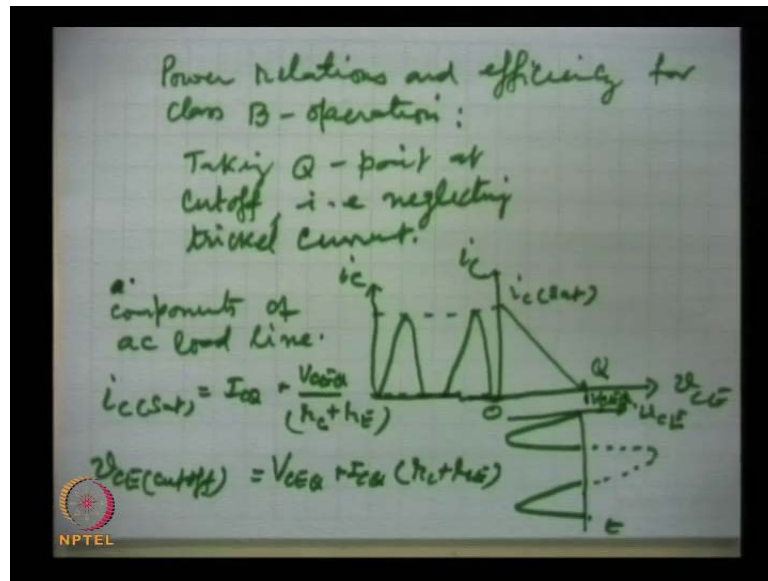 Power relations and efficiency for
class B - operation :
Taking Q - point at
cutoff, i.e neglecting
trickel current.
components of
ac load line.
i_C(sat) = I_CQ + V_CEQ / (r_C + r_E)
v_CE(cutoff) = V_CEQ + I_CQ (r_C + r_E)
i_C
i_C
i_C(sat)
Q
v_CE
O
v_CE
t
NPTEL